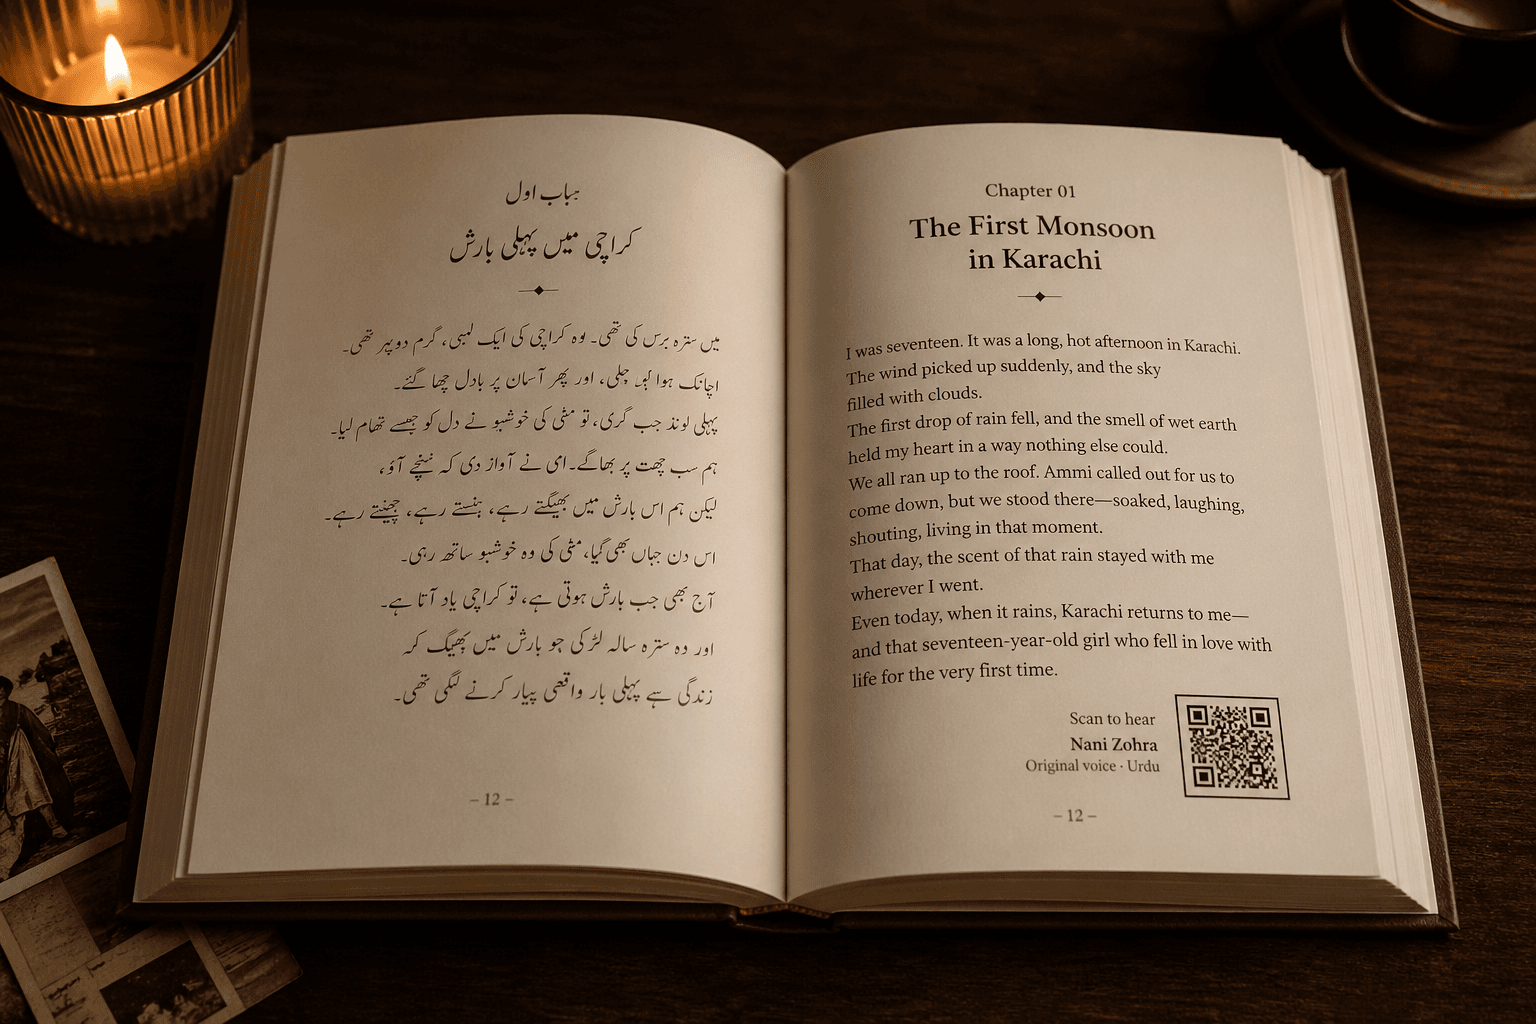 باب اول
کراچی میں پہلی بارش
میں سترہ برس کی تھی۔ وہ کراچی کی ایک لمبی، گرم دوپہر تھی۔
اچانک ہوا چلی، اور پھر آسان پر بادل چھا گئے۔
پہلی لوند جب گری، تو مٹی کی خوشبو نے دل کو جیسے تھام لیا۔
ہم سب چھت پر بھاگے۔ امی نے آواز دی کہ نیچے آؤ،
لیکن ہم اس بارش میں بھیگتے رہے، ہنستے رہے، رہے۔
اس دن جہاں بھی گیا، مٹی کی وہ خوشبو ساتھ رہی۔
آج بھی جب بارش ہوتی ہے، تو کراچی یاد آتا ہے۔
اور وہ سترہ سالہ لڑکی جو بارش میں بھیگ کر
زندگی سے پہلی بار واقعی پیار کرنے لگی تھی۔
– 12 –
Chapter 01
The First Monsoon
in Karachi
I was seventeen. It was a long, hot afternoon in Karachi.
The wind picked up suddenly, and the sky
filled with clouds.
The first drop of rain fell, and the smell of wet earth
held my heart in a way nothing else could.
We all ran up to the roof. Ammi called out for us to
come down, but we stood there—soaked, laughing,
shouting, living in that moment.
That day, the scent of that rain stayed with me
wherever I went.
Even today, when it rains, Karachi returns to me—
and that seventeen-year-old girl who fell in love with
life for the very first time.
Scan to hear
Nani Zohra
Original voice · Urdu
– 12 –